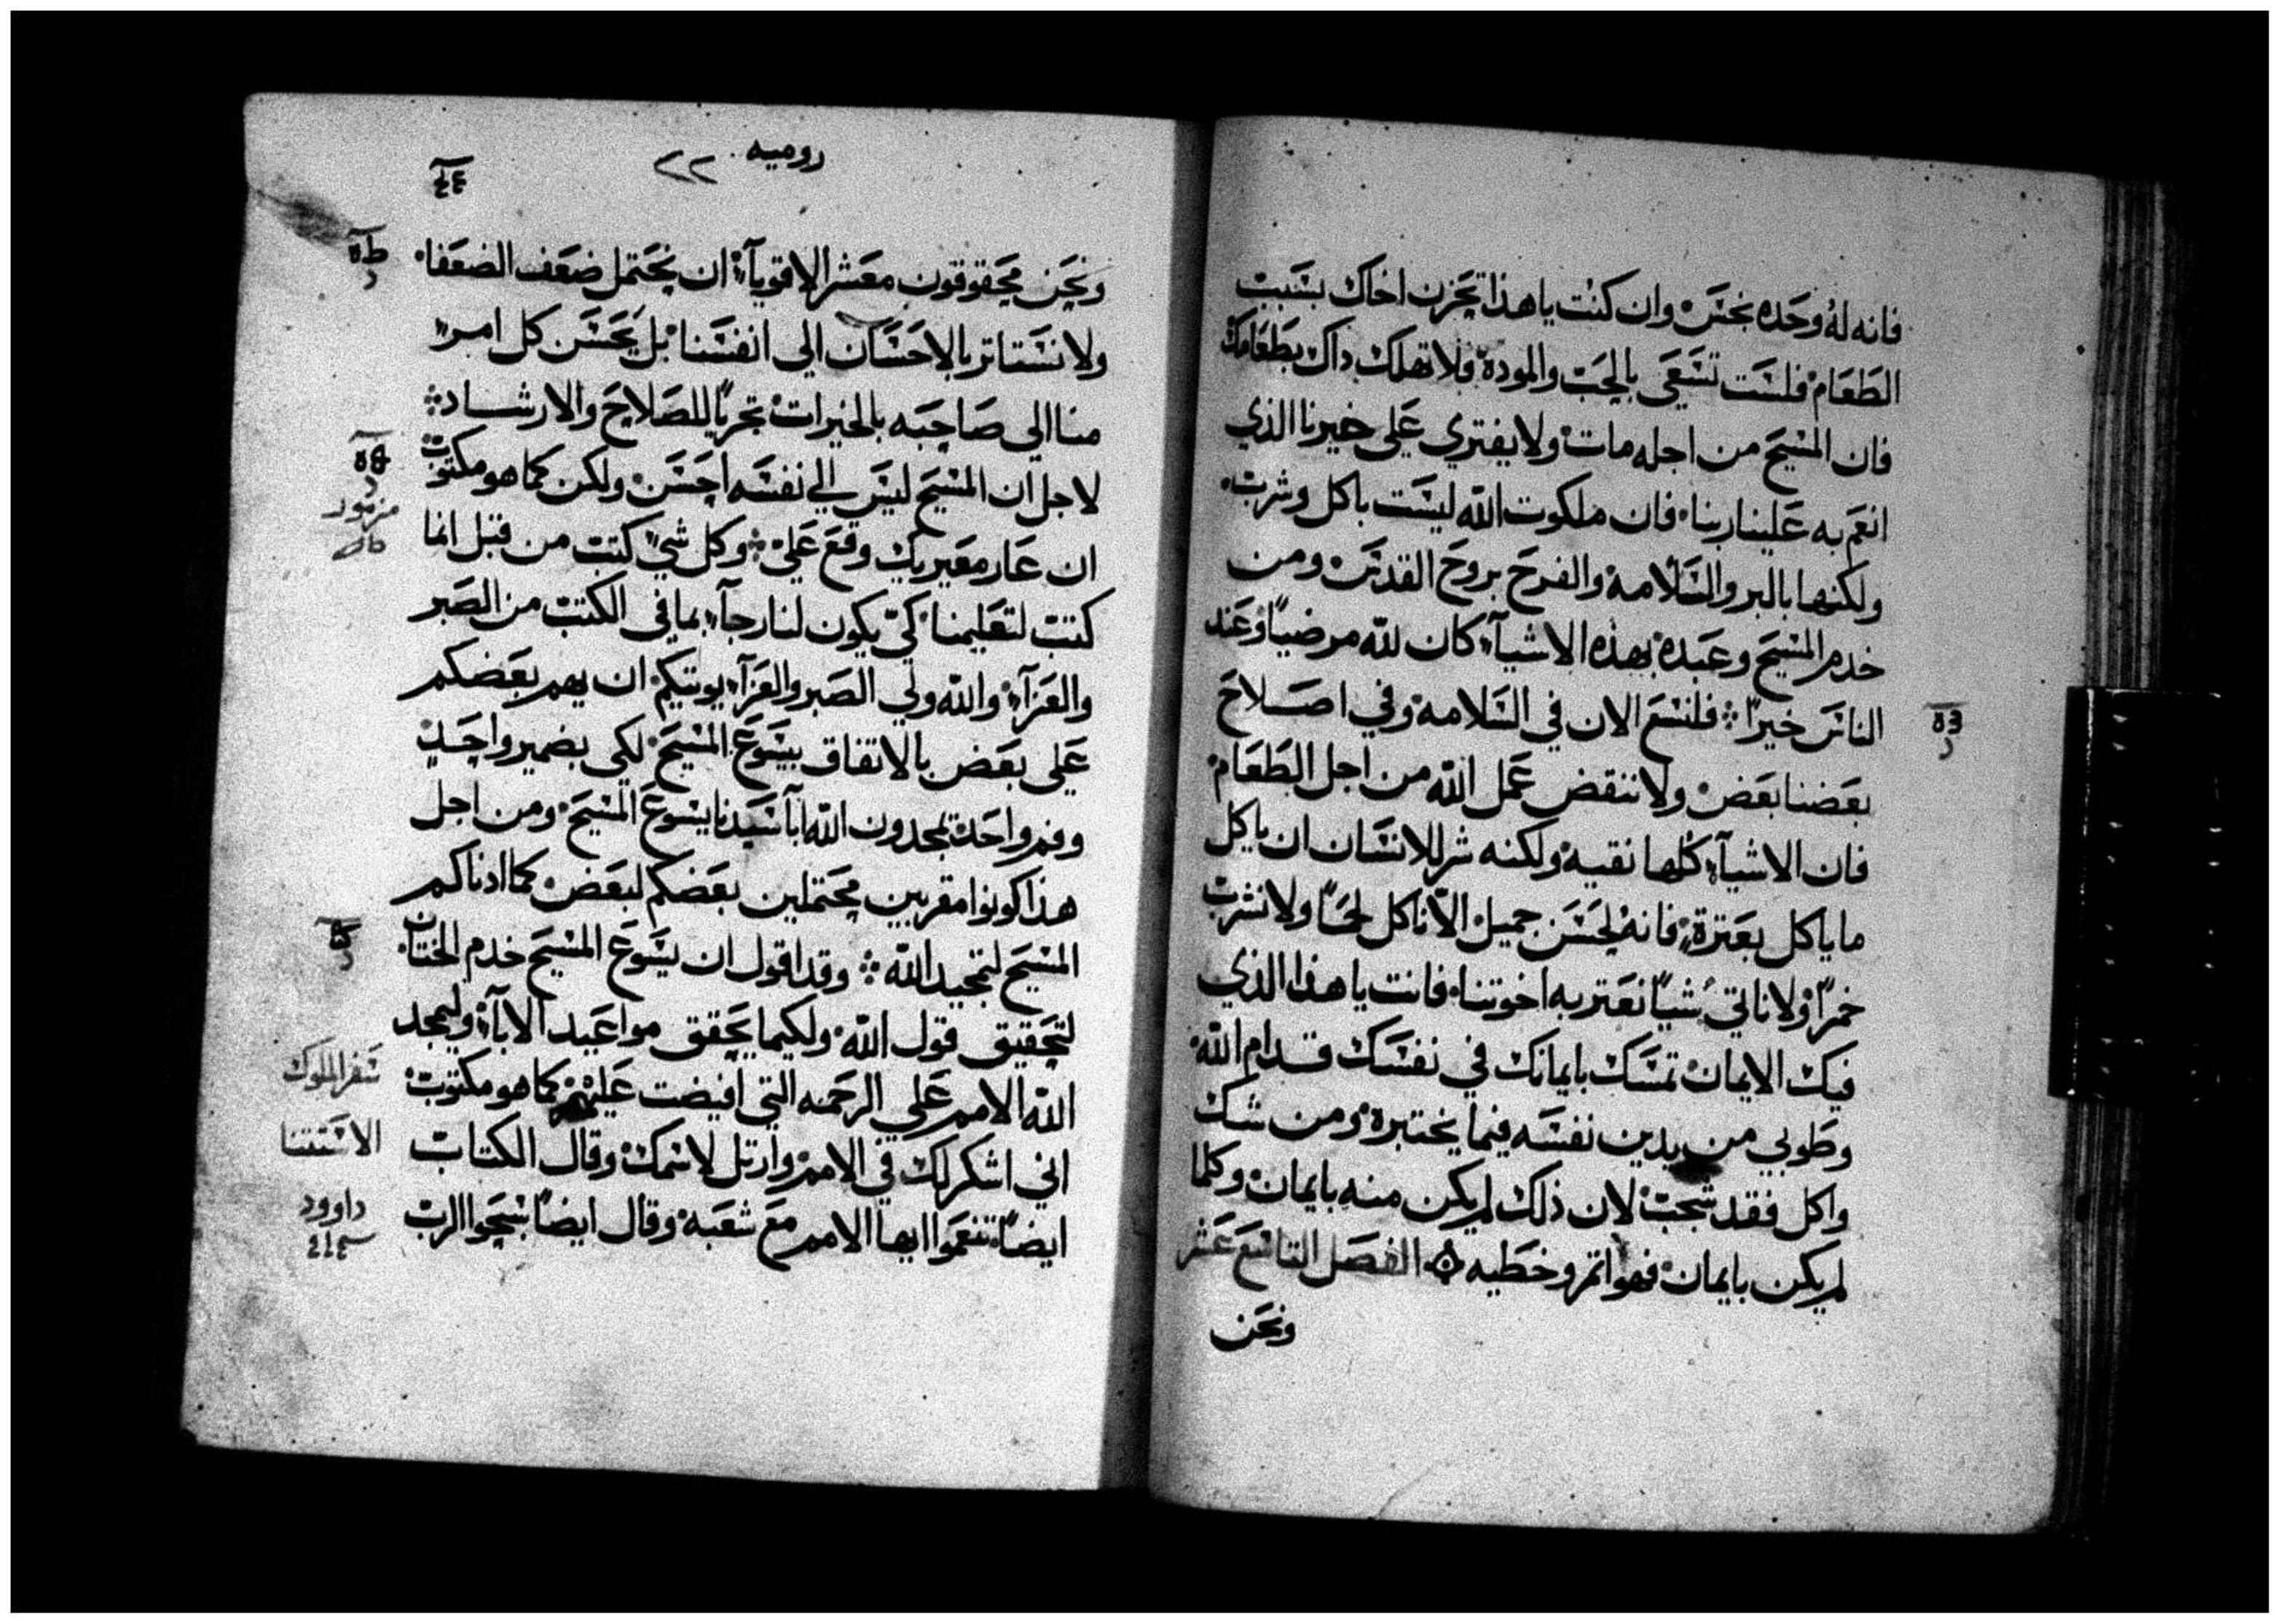 فانه له وحده نجس وان كنت ياهذا تحزن اخاك بسبب
الطعام فلست تسعى بالحب والمودة فلا تهلك بداك بطعامك
فان المسيح من اجله مات ولا يفتري على خيرنا الذي
انعم به علينا ربنا فان ملكوت الله ليست باكل وشرب
ولكنها بالبر والسلامه والفرح بروح القدس ومن
خدم المسيح وعبده بهذه الاشيآء كان لله مرضياً وعند
الناس خيراً فلنسع الان في السلامه وفي اصلاح
بعضنا بعض ولا ننقض عمل الله من اجل الطعام
فان الاشيآء كلها نقيه ولكنه شر للانسان ان ياكل
ما ياكل بعترة فانه لحسن جميل الا ناكل لحماً ولا نشرب
خمراً ولا ناتي شياً نعتر به اخوتنا فانت ياهذا الذي
فيك الايمان تمسك بايمانك في نفسك قدام الله
وطوبي من يدين نفسه فيما يختبره ومن شك
واكل فقد شجب لان ذلك لم يكن منه بايمان وكلما
لم يكن بايمان فهو اتم وخطيه الفصل التاسع عشر
ونحن
روميه ٢٢
ونحن محقوقون معشر الاقويآء ان نحتمل ضعف الضعفا
ولا نستاتر بالاحسان الي انفسنا بل يحسن كل امر
منا الي صاحبه بالخيرات تحرياً للصلاح والارشاد
لاجل ان المسيح ليس الي نفسه احسن ولكن كما هو مكتوب
مزمور
ان عار معيريك وقع علي وكل شي كتب من قبل انما
كتب لتعليمنا كي يكون لنا رجآء بما في الكتب من الصبر
والعزآء والله ولي الصبر والعزآء يوتيكم ان يهم بعضكم
علي بعض بالاتفاق بيسوع المسيح لكي بضمير واحد
وفم واحد تمجدون الله ابا سيدنا يسوع المسيح ومن اجل
هذا كونوا مقربين محتملين بعضكم لبعض كما ادناكم
المسيح لتمجيد الله وقد اقول ان يسوع المسيح خدم الختان
لتحقيق قول الله ولكيما يحقق مواعيد الابآء وليمجد
سفر الملوك
الله الامم علي الرحمه التي افيضت عليهم كما هو مكتوب
اني اشكر لك في الامم وارتل لاسمك وقال الكتاب
الاستتنا
ايضاً تنعموا ايها الامم مع شعبه وقال ايضاً سبحوا الرب
داوود